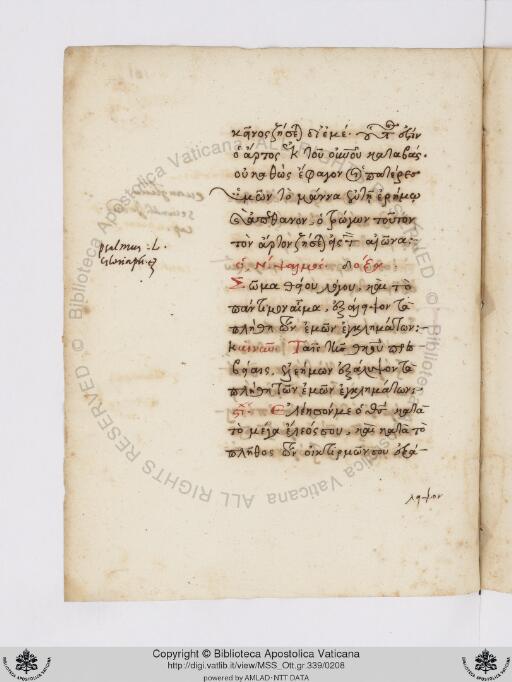 κἀκεῖνος ζήσεται δι' ἐμέ. οὗτός ἐστιν
ὁ ἄρτος ὁ ἐκ τοῦ οὐνοῦ καταβάς.
οὐ καθὼς ἔφαγον οἱ πατέρες
ὑμῶν τὸ μάννα ἐν τῇ ἐρήμῳ
καὶ ἀπέθανον. ὁ τρώγων τοῦτον
τὸν ἄρτον ζήσεται εἰς τὸν αἰῶνα:
psalmus .L.
δόξα
Σῶμα θείου λόγου, καὶ τὸ
πάντιμον αἷμα, ἐξάλειψον τὰ
πλήθη τῶν ἐμῶν ἐγκλημάτων:
Ταῖς τῆς
ἐλεῆμον ἐξάλειψον τὰ
πλήθη τῶν ἐμῶν ἐγκλημάτων:
Ἐλέησόν με ὁ θς κατὰ
τὸ μέγα ἔλεός σου, καὶ κατὰ τὸ
πλῆθος τῶν οἰκτιρμῶν σου ἐξά-
λειψον
© Biblioteca Apostolica Vaticana ALL RIGHTS RESERVED
Copyright © Biblioteca Apostolica Vaticana
http://digi.vatlib.it/view/MSS_Ott.gr.339/0208
powered by AMLAD-NTT DATA